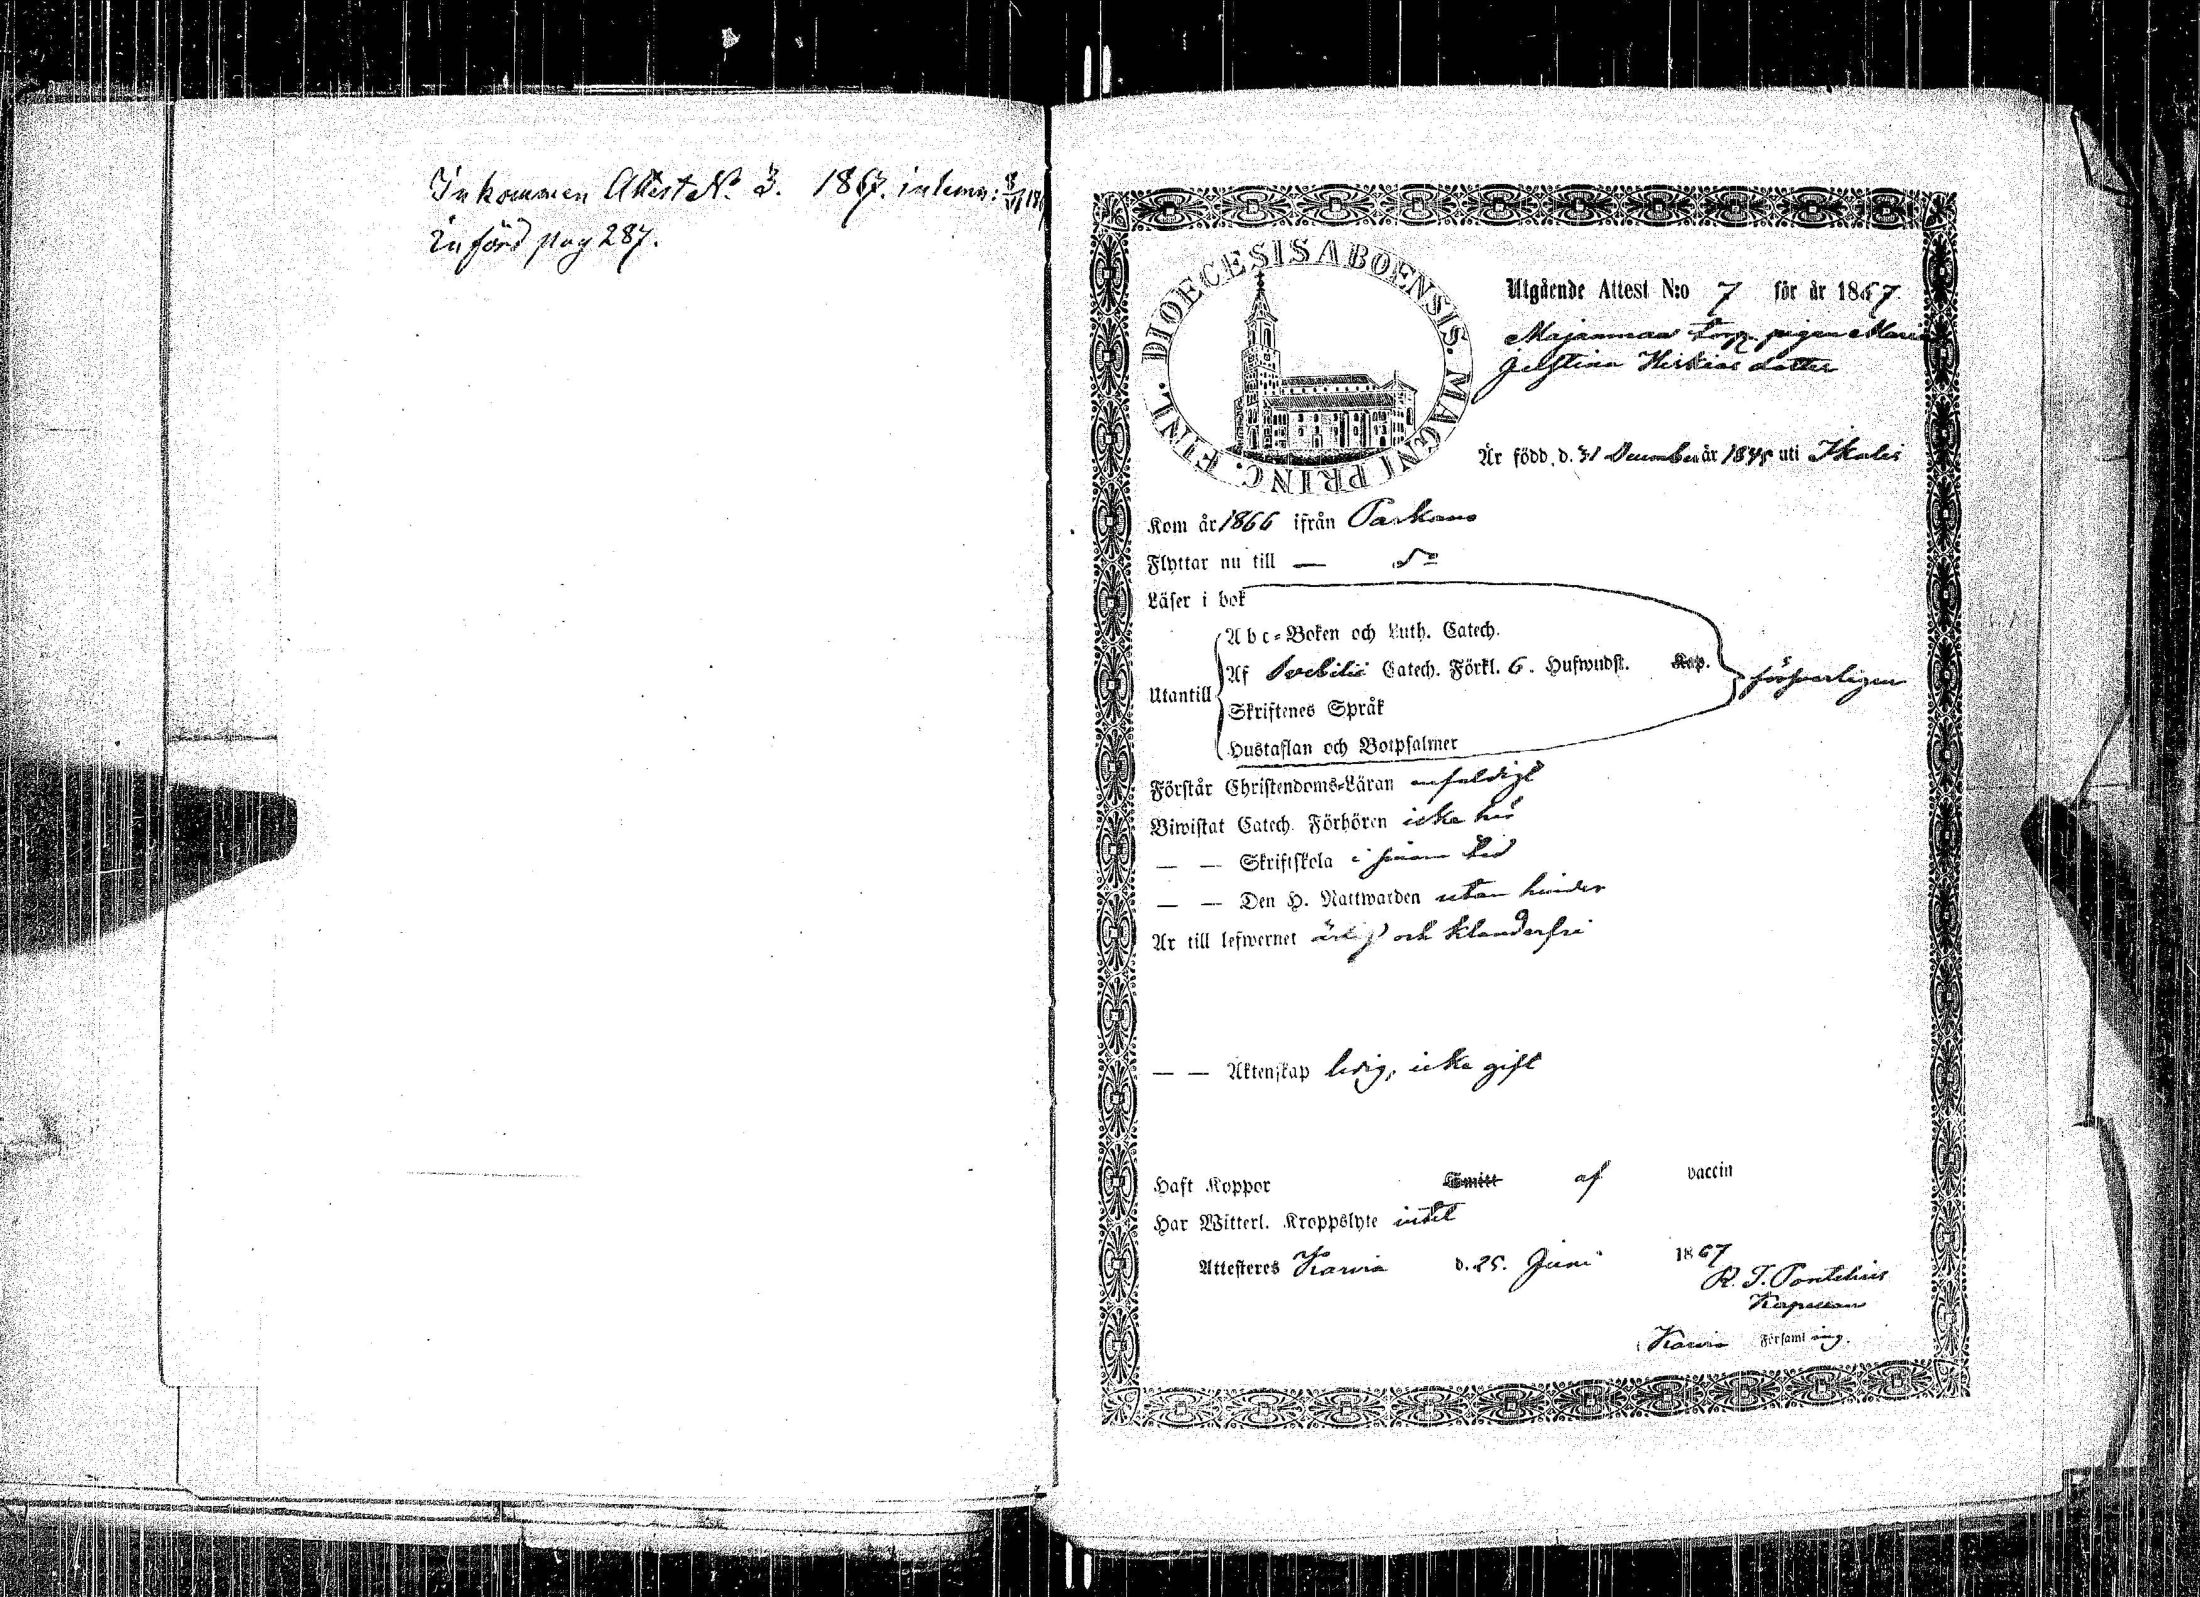 Inkommen Attest No 3. 1867. inlemn:
Införd pag 287.
DIOECESIS ABOENSIS. MAGNI PRINC. FINL.
Utgående Attest N:o 7 för år 1867.
Majanmaa torp. pigan Maria
Hiskias dotter
Är född, d. 31 December år 1845 uti Ikalis
Kom år 1866 ifrån Parkano
Flyttar nu till — Do
Läser i bok
Abc-Boken och Luth. Catech.
Utantill
Af Svebilii Catech. Förkl. 6. Hufwudst. Kap.
försvarligen
Skriftenes Språk
Hustaflan och Botpsalmer
Förstår Christendoms-Läran enfaldigt
Biwistat Catech. Förhören icke här
— — Skriftskola i sinom tid
— — Den H. Nattwarden utan hinder
Är till lefwernet ärlig och klanderfri
— — Äktenskap ledig, icke gift
Haft Koppor Smitt af vaccin
Har Witterl. Kroppslyte intet
Attesteras Karvia d. 25. Juni 1867
R. J. Pontelius
Kapellan
i Karvia Församling.